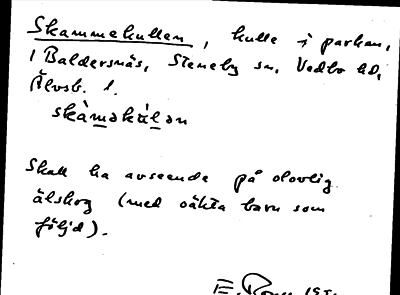 Skammekullen, kulle i parken,
i Baldersnäs, Steneby sn, Vedbo hd,
Älvsb. l.
skàməkùlən
Skall ha avseende på olovlig
älskog (med oäkta barn som
följd).
E.